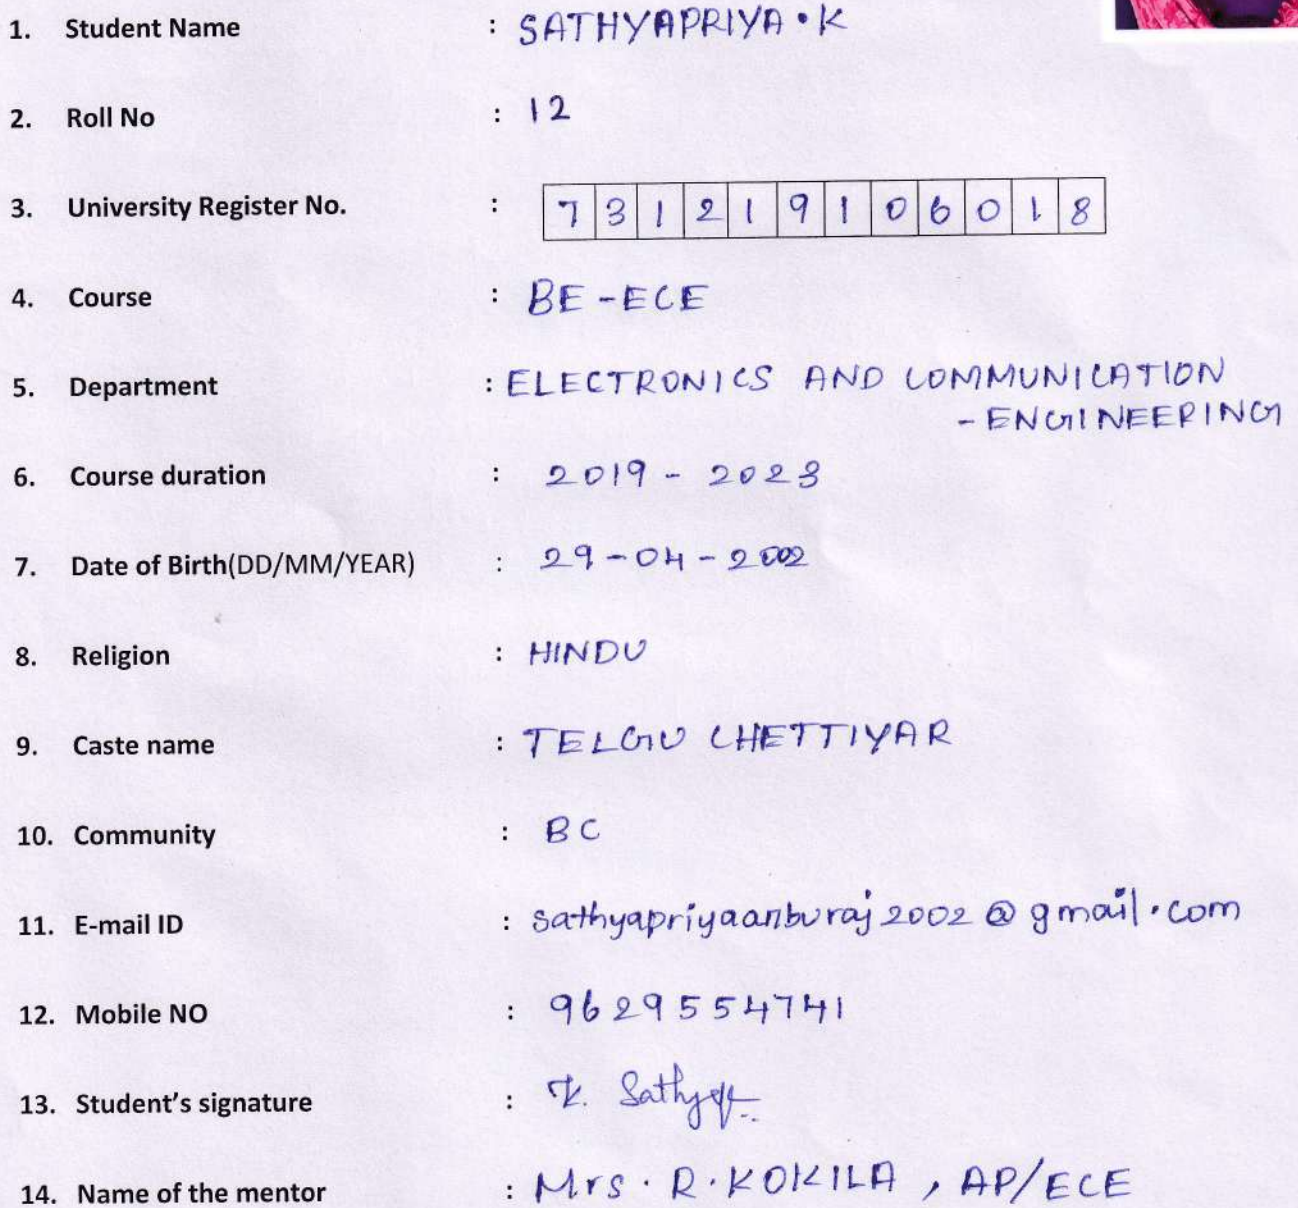 1. Student Name : SATHYAPRIYA.K
2. Roll No : 12
3. University Register No. : 731219106018
4. Course : BE-ECE
5. Department : ELECTRONICS AND COMMUNICATION
-ENGINEERING
6. Course duration : 2019 - 2023
7. Date of Birth(DD/MM/YEAR) : 29-04-2002
8. Religion : HINDU
9. Caste name : TELGU CHETTIYAR
10. Community : BC
11. E-mail ID : sathyapriyaanburaj2002@gmail.com
12. Mobile NO : 9629554741
13. Student's signature : K.
14. Name of the mentor : Mrs. R. KOKILA, AP/ECE